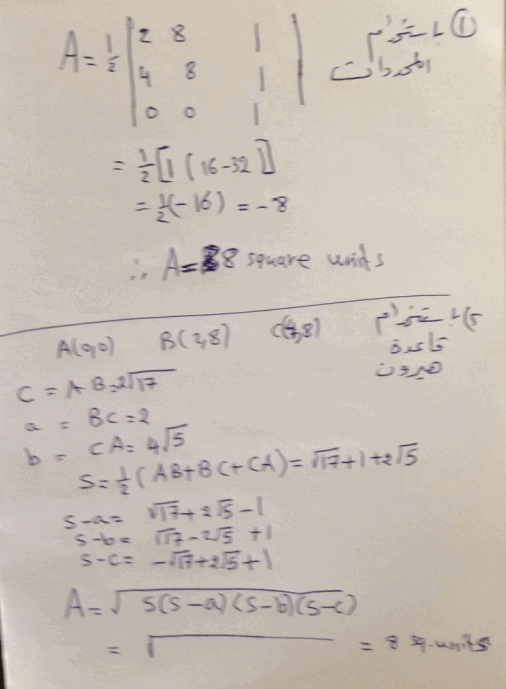 ① باستخدام المحددات
A = 1/2 | 2 8 1 |
| 4 8 1 |
| 0 0 1 |
= 1/2 [1 (16-32)]
= 1/2 (-16) = -8
∴ A = 8 square units
2) باستخدام قاعدة هيرون
A(0,0) B(2,8) C(4,8)
c = AB = 2√17
a = BC = 2
b = CA = 4√5
S = 1/2 (AB + BC + CA) = √17 + 1 + 2√5
S-a = √17 + 2√5 - 1
S-b = √17 - 2√5 + 1
S-c = -√17 + 2√5 + 1
A = √ S(S-a)(S-b)(S-c)
= √ = 8 sq. units